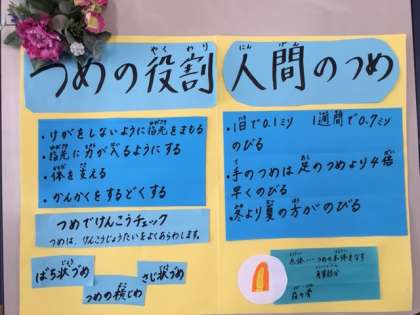 つめの役割
・けがをしないように指先をまもる
・指先に力が入るようにする
・体を支える
・かんかくをするどくする
つめでけんこうチェック
つめは、けんこうじょうたいをよくあらわします。
ばち状づめ
つめの横じわ
さじ状づめ
人間のつめ
・1日で0.1ミリ 1週間で0.7ミリ
のびる
・手のつめは足のつめより4倍
早くのびる
・冬より夏の方がのびる
つめの本体をなす